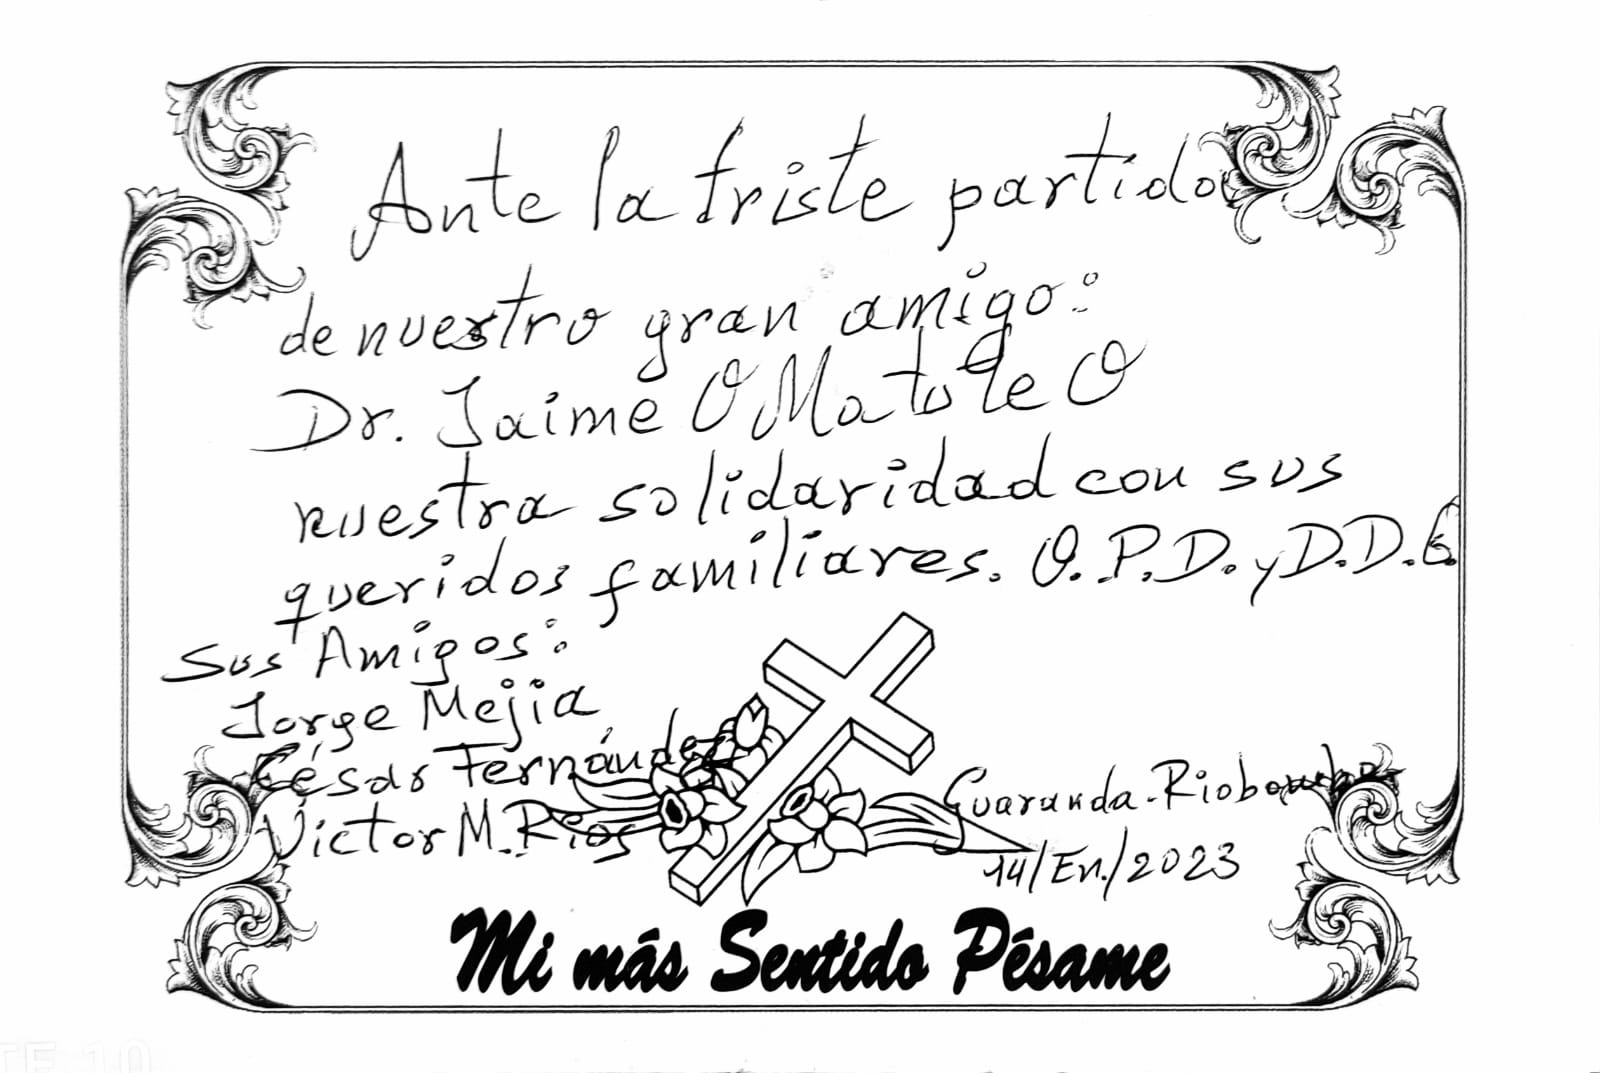 Ante la triste partida
de nuestro gran amigo:
Dr. Jaime O Matute O
nuestra solidaridad con sus
queridos familiares. O.P.D. y D.D.G.
Sus Amigos:
Jorge Mejia
César Fernández
Victor M. Rios
Guaranda-Riobamba
14/En./2023
Mi más Sentido Pésame